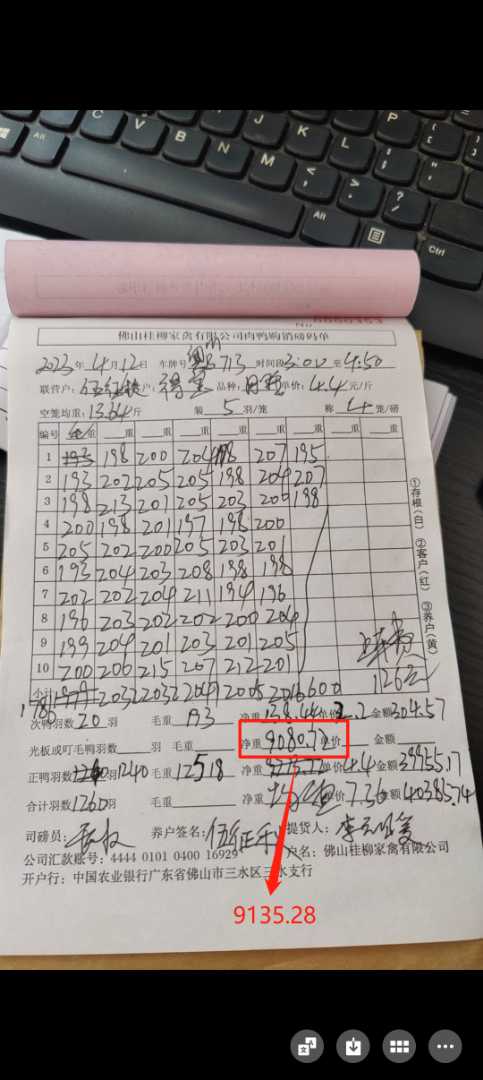 Alt
C
V
B
N
M
Alt
Ctrl
佛山桂柳家禽有限公司肉鸭购销磅码单
2023年4月12日 车牌号 713 时间段3:00至4:50
联营户: 户: 品种: 单价: 4.4元/斤
空笼均重: 13.64斤 装 5 羽/笼 称 4 笼/磅
编号 重 重 重 重 重 重 重 重 重
1 193 198 200 204 198 207 195
2 193 202 205 205 198 204 207
3 198 213 201 205 203 200 198
4 200 198 201 197 198 200
5 205 202 200 205 203 201
6 193 204 203 208 198 198
7 202 202 204 211 194 196
8 196 203 202 202 200 204
9 199 204 201 203 201 205
10 200 206 215 207 212 201
小计 1786 2032 2032 2049 2005 2016 600
1262
①存根(白) ②客户(红) ③养户(黄)
次鸭羽数20羽 毛重 净重138.44单价2.2金额304.57
光板或叮毛鸭羽数 羽 毛重 净重9080.72单价 金额
正鸭羽数1240 毛重12518 净重 单价4.4金额39955.17
合计羽数1260羽 毛重 净重 单价7.30金额40385.74
司磅员: 养户签名: 提货人:
公司汇款账号: 4444 0101 0400 16929 户名: 佛山桂柳家禽有限公司
开户行: 中国农业银行广东省佛山市三水区三水支行
9135.28